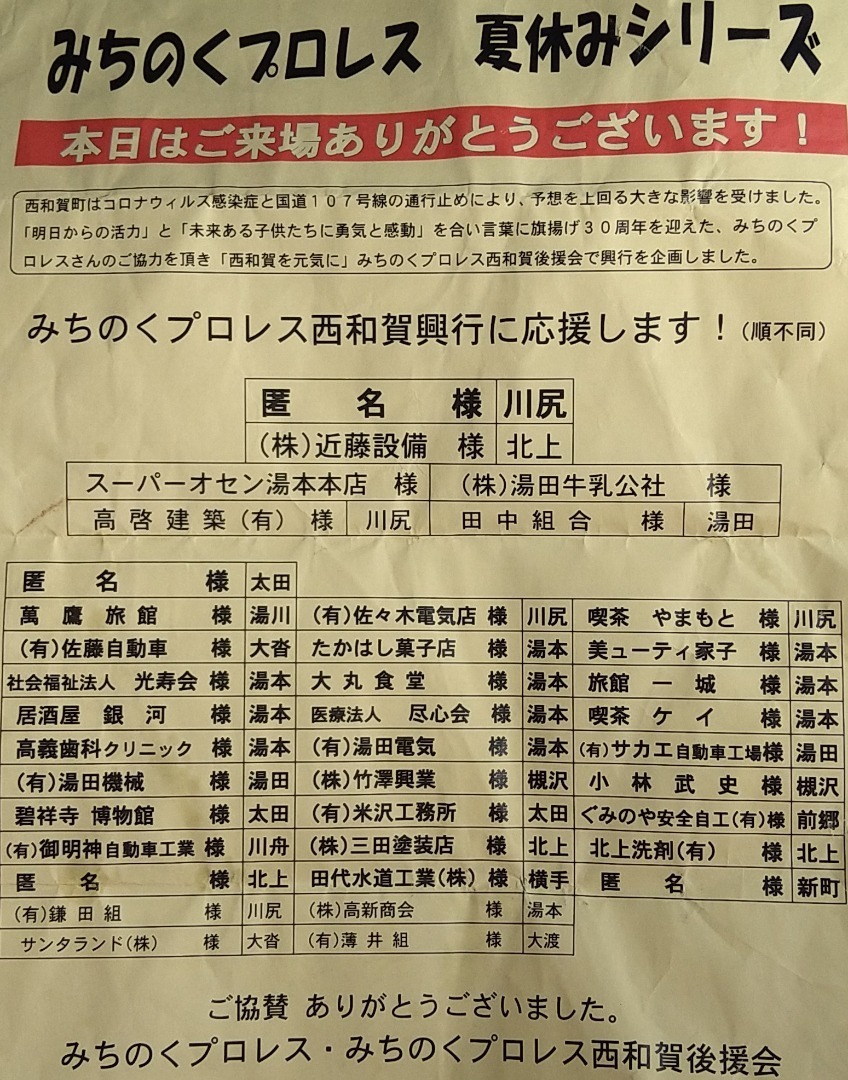 みちのくプロレス 夏休みシリーズ
本日はご来場ありがとうございます！
西和賀町はコロナウィルス感染症と国道１０７号線の通行止めにより、予想を上回る大きな影響を受けました。
「明日からの活力」と「未来ある子供たちに勇気と感動」を合い言葉に旗揚げ３０周年を迎えた、みちのくプ
ロレスさんのご協力を頂き「西和賀を元気に」みちのくプロレス西和賀後援会で興行を企画しました。
みちのくプロレス西和賀興行に応援します！(順不同)
匿名 様 川尻
(株)近藤設備 様 北上
スーパーオセン湯本本店 様 (株)湯田牛乳公社 様
高啓建築(有) 様 川尻 田中組合 様 湯田
匿名 様 太田
萬鷹旅館 様 湯川 (有)佐々木電気店 様 川尻 喫茶 やまもと 様 川尻
(有)佐藤自動車 様 大沓 たかはし菓子店 様 湯本 美ューティ家子 様 湯本
社会福祉法人 光寿会 様 湯本 大丸食堂 様 湯本 旅館一城 様 湯本
居酒屋 銀河 様 湯本 医療法人 尽心会 様 湯本 喫茶ケイ 様 湯本
高義歯科クリニック 様 湯本 (有)湯田電気 様 湯本 (有)サカエ自動車工場様 湯田
(有)湯田機械 様 湯田 (株)竹澤興業 様 槻沢 小林武史 様 槻沢
碧祥寺 博物館 様 太田 (有)米沢工務所 様 太田 ぐみのや安全自工(有)様 前郷
(有)御明神自動車工業 様 川舟 (株)三田塗装店 様 北上 北上洗剤(有) 様 北上
匿名 様 北上 田代水道工業(株) 様 横手 匿名 様 新町
(有)鎌田組 様 川尻 (株)高新商会 様 湯本
サンタランド(株) 様 大沓 (有)薄井組 様 大渡
ご協賛 ありがとうございました。
みちのくプロレス・みちのくプロレス西和賀後援会